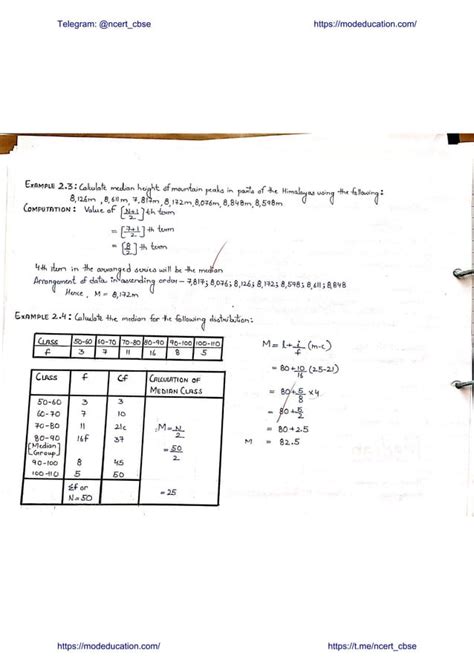 Telegram: @ncert_cbse https://modeducation.com/
EXAMPLE 2.3: Calculate median height of mountain peaks in parts of the Himalayas using the following:
8,126m, 8,611m, 7,817m, 8,172m, 8,076m, 8,848m, 8,598m
COMPUTATION: Value of [N+1/2]th term
= [7+1/2]th term
= [8/2]th term
4th item in the arranged series will be the median
Arrangement of data in ascending order - 7,817; 8,076; 8,126; 8,172; 8,598; 8,611; 8,848
Hence, M = 8,172m
EXAMPLE 2.4: Calculate the median for the following distribution:
CLASS 50-60 60-70 70-80 80-90 90-100 100-110
f 3 7 11 16 8 5
CLASS f Cf CALCULATION OF MEDIAN CLASS
50-60 3 3
60-70 7 10
70-80 11 21c
80-90 16f 37
[Median Group]
90-100 8 45
100-110 5 50
Σf or N=50
M = N/2
= 50/2
= 25
M = l + i/f (m-c)
= 80 + 10/16 (25-21)
= 80 + 5/8 × 4
= 80 + 5/2
= 80 + 2.5
M = 82.5
https://modeducation.com/ https://t.me/ncert_cbse